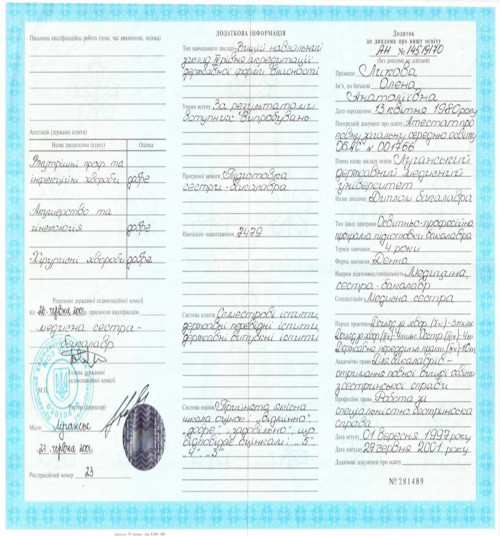 Письмова кваліфікаційна робота (тема, час виконання, оцінка)
Атестація (державні іспити)
Назва дисципліни (курсу) Оцінка
Внутрішні хвор. та
інфекційні хвороби добре
Акушерство та
гінекологія добре
Хірургічні хвороби добре
Рішенням державної екзаменаційної комісії
від 26 червня 2001, присвоєно кваліфікацію
медична сестра-
бакалавр
Голова державної
екзаменаційної комісії
М.П.
Ректор (директор)
Місто Луганськ
27 червня 2001
Реєстраційний номер 23
ДОДАТКОВА ІНФОРМАЦІЯ
Тип навчального закладу Вищий навчальний
заклад IV рівня акредитації
державної форми власності
Умови вступу За результатами
вступних випробувань
Програмні вимоги Підготовка
сестри-бакалавра
Начальне навантаження 7479
Система іспитів Семестрові іспити,
державні перевідні іспити,
державні випускні іспити
Система оцінок Прийнята якісна
шкала оцінок: "відмінно",
"добре", "задовільно", що
відповідає оцінкам: "5",
"4", "3"
Додаток
до диплома про вищу освіту
АН № 14519170
(без диплома не дійсний)
Прізвище Ликова
Ім'я, по батькові Олена
Анатоліївна
Дата народження 13 квітня 1980 року
Попередній документ про освіту Атестат про
повну загальну середню освіту
№ 001766
Повна назва закладу освіти Луганський
державний медичний
університет
Назва диплома Диплом бакалавра
Тип (вид) програми Освітньо-професійна
програма підготовки бакалавра
Термін навчання 4 роки
Форма навчання Денна
Напрям підготовки/спеціальність Медицина,
сестра-бакалавр
Спеціалізація Медична сестра
Період практики
Академічні права
отримання повної вищої освіти
з сестринської справи
Професійні права Робота за
спеціальністю сестринська
справа
Дата вступу 01 вересня 1997 року
Дата випуску 27 червня 2001 року
Додаткові документи про освіту
№ 281489